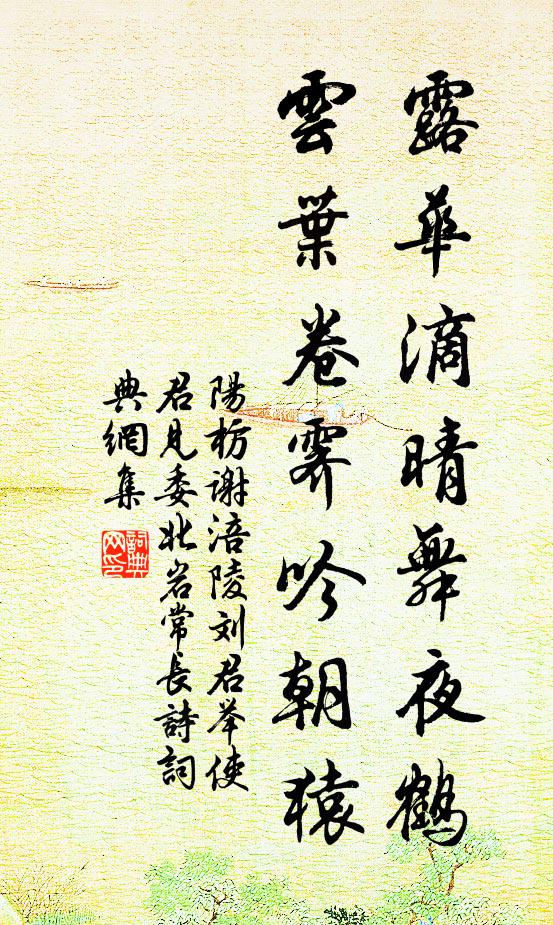 露華滴晴舞夜鶴
雲葉卷霽吟朝猿
陽枋謝涪陵刘君举使
君見委北岩常長詩詞
典網集
詞典
网印